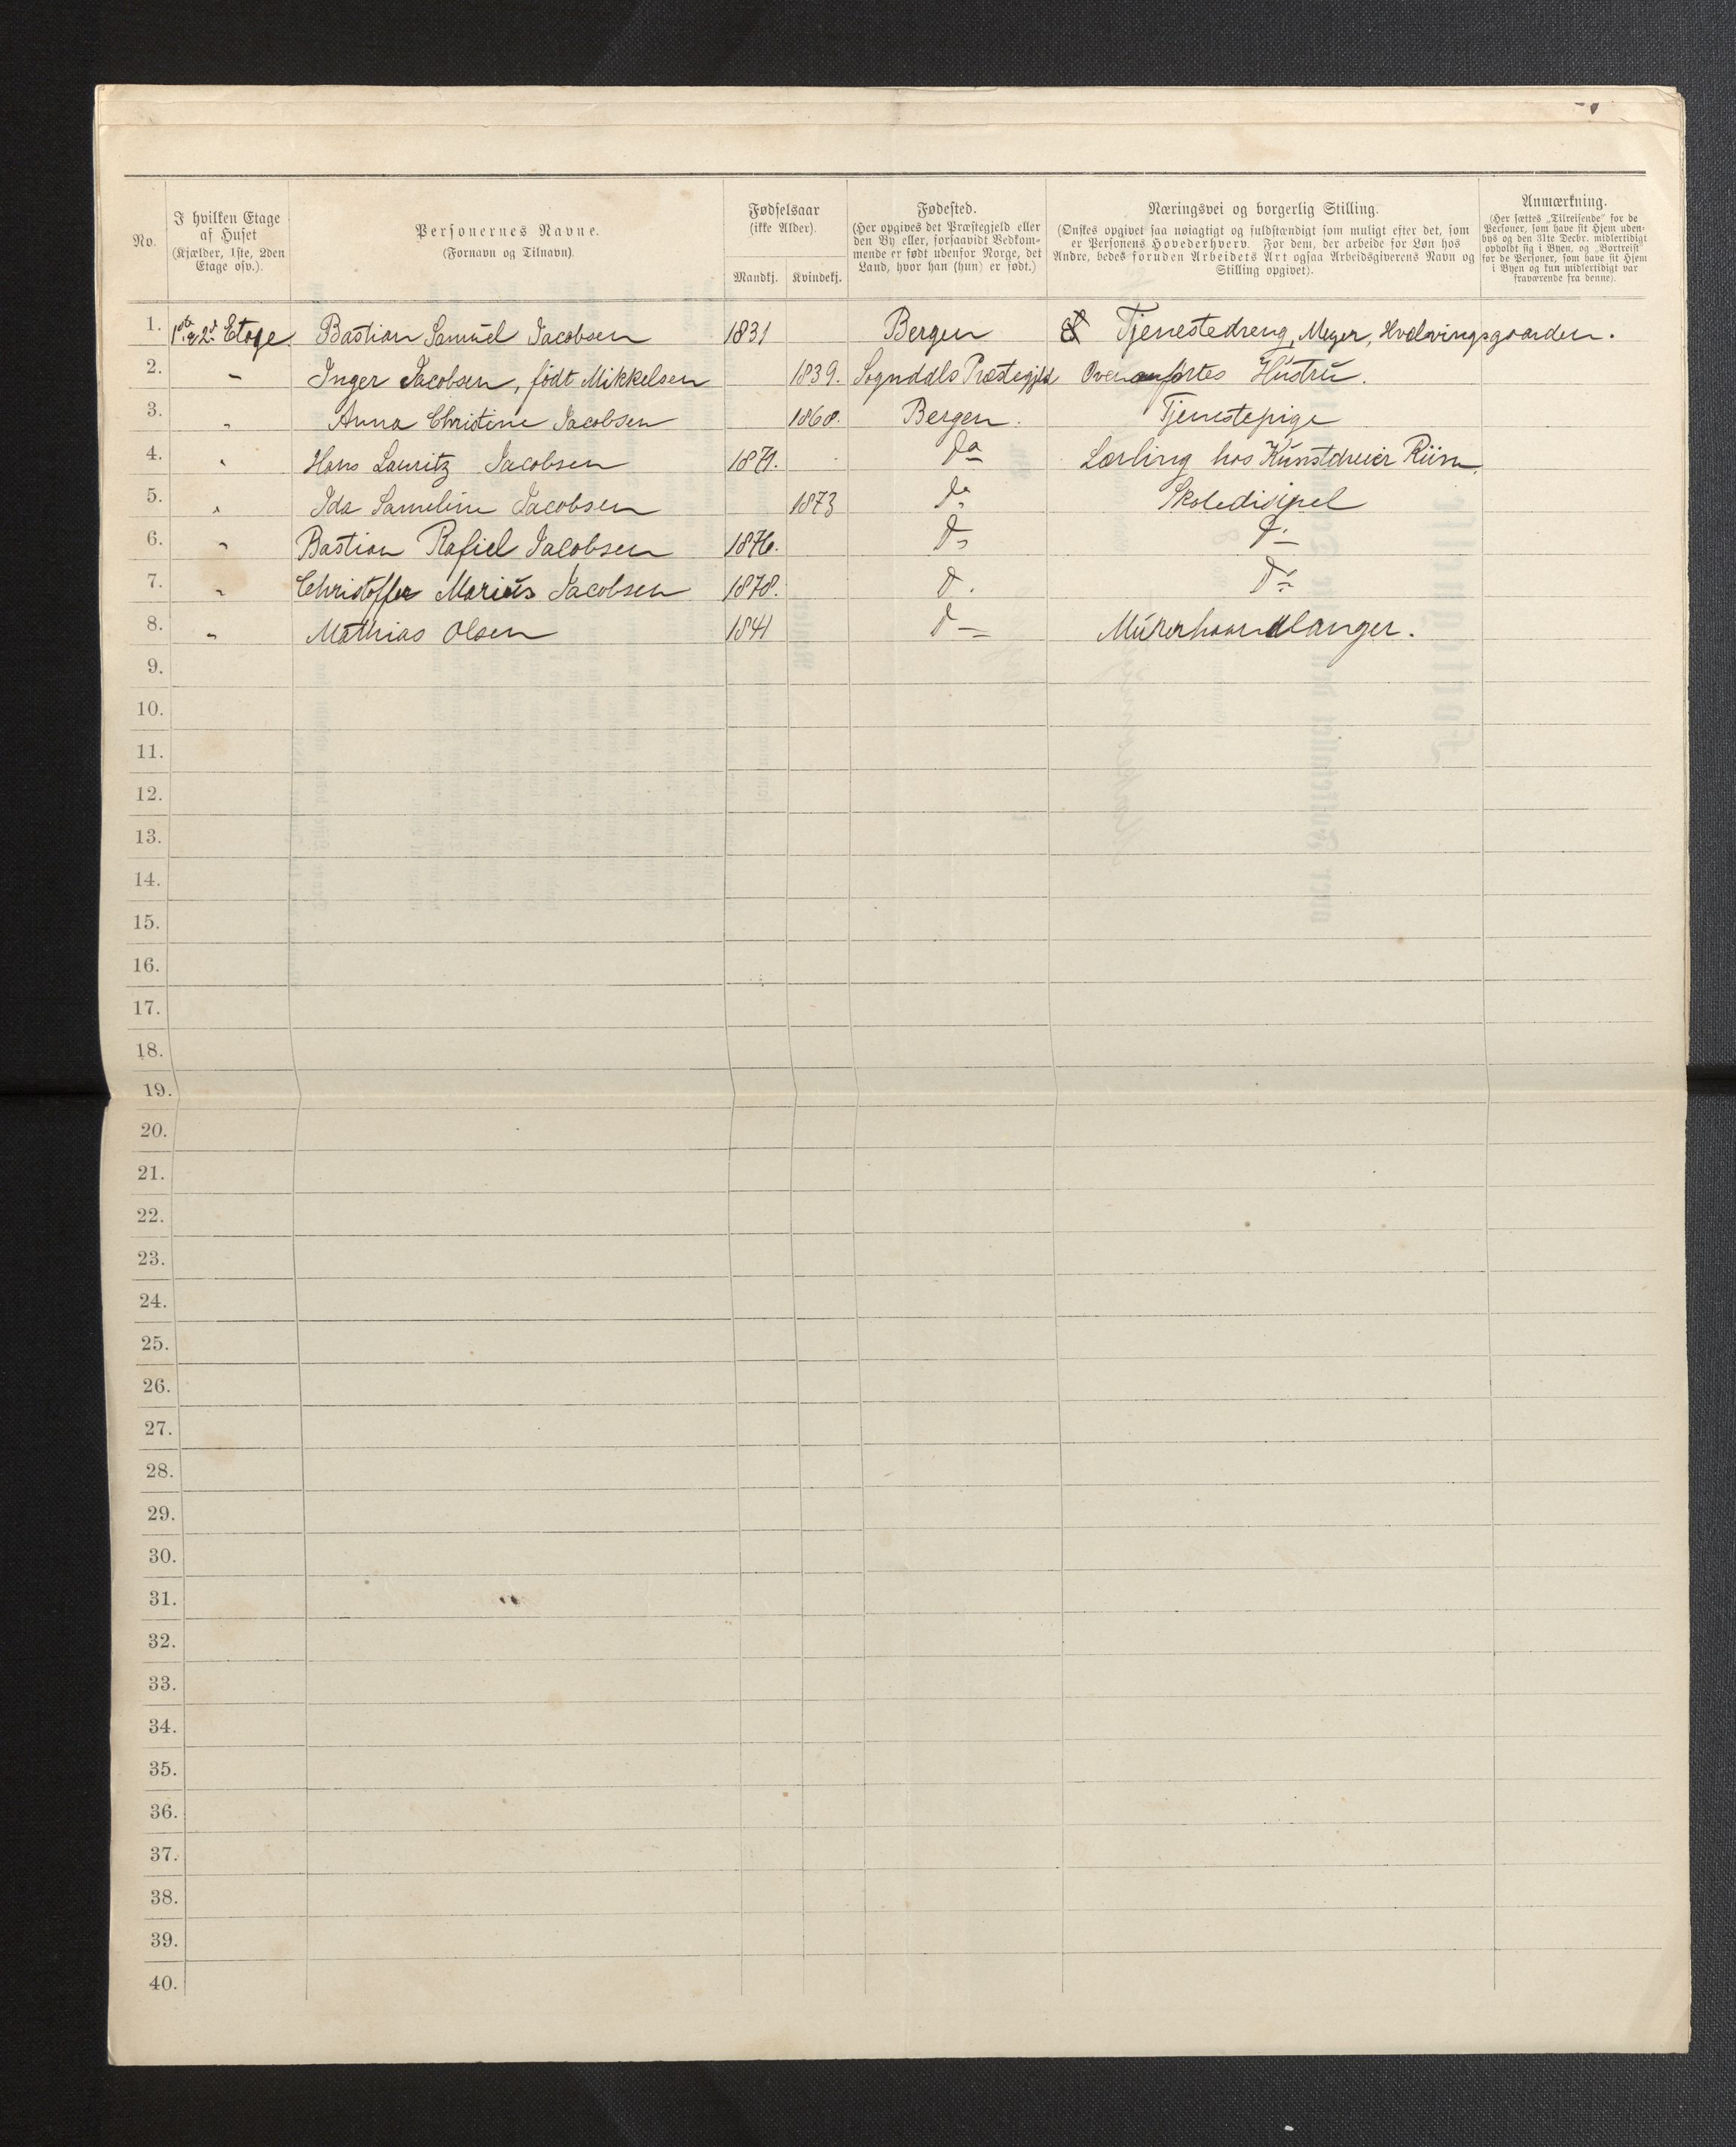 No.
I hvilken Etage
af Huset
(Kjælder, 1ste, 2den
Etage osv.).
Personernes Navne.
(Fornavn og Tilnavn).
Fødselsaar
(ikke Alder).
Mandkj. Kvindekj.
Fødested.
(Her opgives det Præstegjeld eller
den By eller, forsaavidt Vedkom-
mende er født udenfor Norge, det
Land, hvor han (hun) er født.)
Næringsvei og borgerlig Stilling.
(Ønskes opgivet saa nøiagtigt og fuldstændigt som muligt efter det, som
er Personens Hovederhverv. For dem, der arbeide for Løn hos
Andre, bedes foruden Arbeidets Art ogsaa Arbeidsgiverens Navn og
Stilling opgivet).
Anmærkning.
(Her sættes „Tilreisende" for de
Personer, som have sit Hjem uden-
bys og den 31te Decbr. midlertidigt
opholdt sig i Byen, og „Bortreist"
for de Personer, som have sit Hjem
i Byen og kun midlertidigt var
fraværende fra denne).
1. 1ste & 2d Etage Bastian Samuel Jacobsen 1831 Bergen Tjenestedreng, Meyer, Hvelvingsgaarden.
2. " Inger Jacobsen, født Mikkelsen 1839. Sogndals Præstegjeld Ovenanførtes Hustru.
3. " Anna Christine Jacobsen 1868. Bergen. Tjenestepige
4. " Hans Lauritz Jacobsen 1871. do Lærling hos Kunstdreier Riisn
5. " Ida Sameline Jacobsen 1873 do Skoledisipel
6. " Bastian Rafiel Jacobsen 1876. do do
7. " Christoffer Marius Jacobsen 1878. do do
8. " Mathias Olsen 1841 do Murerhaandlanger.
9.
10.
11.
12.
13.
14.
15.
16.
17.
18.
19.
20.
21.
22.
23.
24.
25.
26.
27.
28.
29.
30.
31.
32.
33.
34.
35.
36.
37.
38.
39.
40.